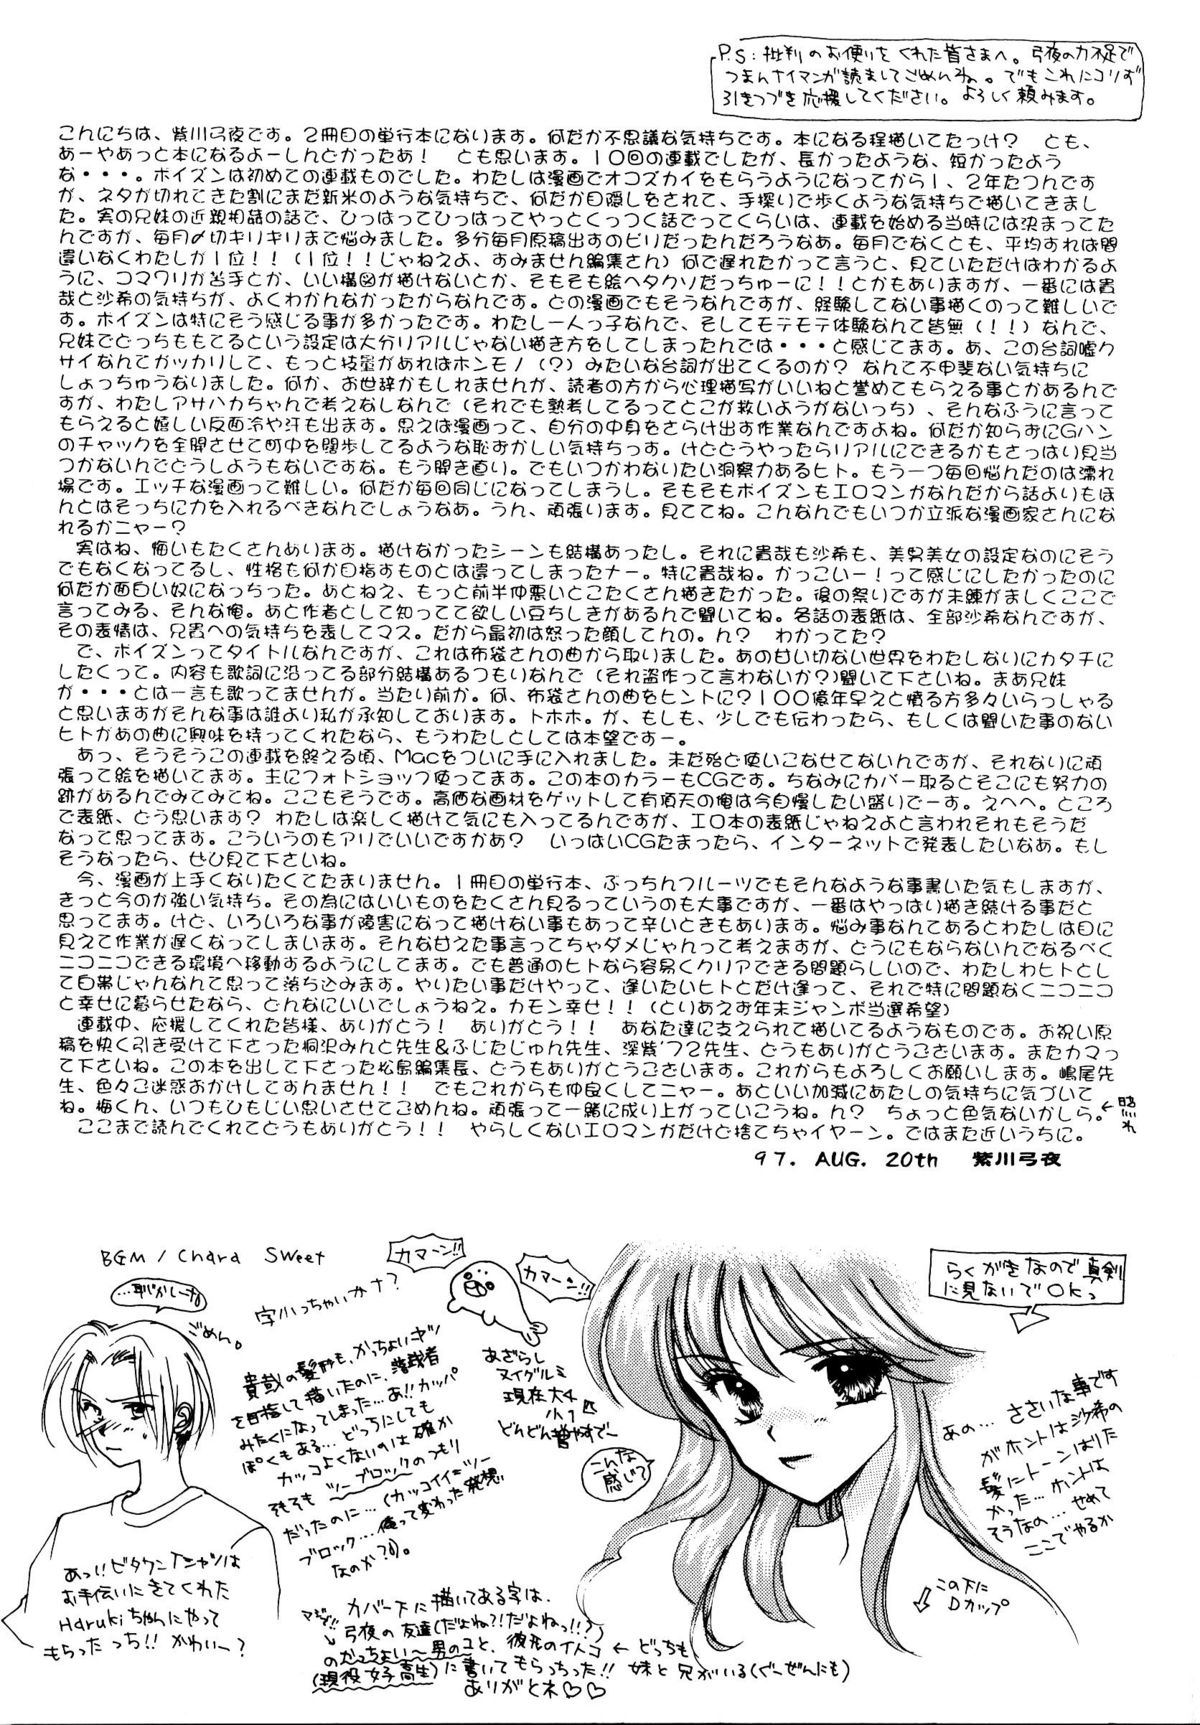 P.S:批判のお便りをくれた皆さまへ。弓夜の力不足で
つまんナイマンガ読ましてごめんね。でもこれにコリず
引きつづき応援してください。よろしく頼みます。
こんにちは、紫川弓夜です。2冊目の単行本になります。何だか不思議な気持ちです。本になる程描いてたっけ？　とも、
あーやあっと本になるよーしんどかったあ！　とも思います。10回の連載でしたが、長かったような、短かったよう
な・・・。ポイズンは初めての連載ものでした。わたしは漫画でオコズカイをもらうようになってから1、2年たつんです
が、ネタが切れてきた割にまだ新米のような気持ちで、何だか目隠しをされて、手探りで歩くような気持ちで描いてきまし
た。実の兄妹の近親相姦の話で、ひっぱってひっぱってやっとくっつく話でってくらいは、連載を始める当時には決まってた
んですが、毎月〆切ギリギリまで悩みました。多分毎月原稿出すのビリだったんだろうなあ。毎月でなくとも、平均すれば間
違いなくわたしが1位！！（1位！！じゃねえよ、すみません編集さん）何で遅れたかって言うと、見ていただけばわかるよ
うに、コマワリが苦手とか、いい構図が描けないとか、そもそも絵ヘタクソだっちゅーに！！とかもありますが、一番には貴
哉と沙希の気持ちが、よくわかんなかったからなんです。どの漫画でもそうなんですが、経験してない事描くのって難しいで
す。ポイズンは特にそう感じる事が多かったです。わたし一人っ子なんで、そしてモテモテ体験なんて皆無（！！）なんで、
兄妹でどっちももてるという設定は大分リアルじゃない描き方をしてしまったんでは・・・と感じてます。あ、この台詞嘘ク
サイなんてガッカリして、もっと技量があればホンモノ（？）みたいな台詞が出てくるのか？なんて不甲斐ない気持ちに
しょっちゅうなりました。何か、お世辞かもしれませんが、読者の方から心理描写がいいねと誉めてもらえる事とかあるんで
すが、わたしアサハカちゃんで考えなしなんで（それでも熟考してるってとこが救いようがないっち）、そんなふうに言って
もらえると嬉しい反面冷や汗も出ます。思えば漫画って、自分の中身をさらけ出す作業なんですよね。何だか知らずにGパン
のチャックを全開させて町中を闊歩してるような恥ずかしい気持ちっす。けどどうやったらリアルにできるかもさっぱり見当
つかないんでどうしようもないですな。もう開き直り。でもいつかわないたい洞察力あるヒト。もう一つ毎回悩んだのは濡れ
場です。エッチな漫画って難しい。何だか毎回同じになってしまうし。そもそもポイズンもエロマンガなんだから話よりもほ
んとはそっちに力を入れるべきなんでしょうなあ。うん、頑張ります。見ててね。こんなんでもいつか立派な漫画家さんにな
れるかニャー？
実はね、悔いもたくさんあります。描けなかったシーンも結構あったし。それに貴哉も沙希も、美男美女の設定なのにそう
でもなくなってるし、性格も何か目指すものとは違ってしまったナー。特に貴哉ね。かっこいー！って感じにしたかったのに
何だか面白い奴になっちった。あとねえ、もっと前半仲悪いとこたくさん描きたかった。後の祭りですが未練がましくここで
言ってみる、そんな俺。あと作者として知ってて欲しい豆ちしきがあるんで聞いてね。各話の表紙は、全部沙希なんですが、
その表情は、兄貴への気持ちを表してマス。だから最初は怒った顔してんの。ん？　わかってた？
で、ポイズンってタイトルなんですが、これは布袋さんの曲から取りました。あの甘い切ない世界をわたしなりにカタチに
したくって。内容も歌詞に沿ってる部分結構あるつもりなんで（それ盗作って言わないか？）聞いて下さいね。まあ兄妹
が・・・とは一言も歌ってませんが。当たり前か。何、布袋さんの曲をヒントに？100億年早えと憤る方多々いらっしゃる
と思いますがそんな事は誰より私が承知しております。トホホ。が、もしも、少しでも伝わったら、もしくは聞いた事のない
ヒトがあの曲に興味を持ってくれたなら、もうわたしとしては本望ですー。
あっ、そうそうこの連載を終える頃、Macをついに手に入れました。未だ殆ど使いこなせてないんですが、それなりに頑
張って絵を描いてます。主にフォトショップ使ってます。この本のカラーもCGです。ちなみにカバー取るとそこにも努力の
跡があるんでみてみてね。ここもそうです。高価な画材をゲットして有頂天の俺は今自慢したい盛りでーす。えへへ。ところ
で表紙、どう思います？わたしは楽しく描けて気にも入ってるんですが、エロ本の表紙じゃねえよと言われそれもそうだ
なって思ってます。こういうのもアリでいいですかあ？　いっぱいCGたまったら、インターネットで発表したいなあ。もし
そうなったら、ぜひ見て下さいね。
今、漫画が上手くなりたくてたまりません。1冊目の単行本、ぷっちんフルーツでもそんなような事書いた気もしますが、
きっと今のが強い気持ち。その為にはいいものをたくさん見るっていうのも大事ですが、一番はやっぱり描き続ける事だと
思ってます。けど、いろいろな事が障害になって描けない事もあって辛いときもあります。悩み事なんてあるとわたしは目に
見えて作業が遅くなってしまいます。そんな甘えた事言ってちゃダメじゃんって考えますが、どうにもならないんでなるべく
ニコニコできる環境へ移動するようにしてます。でも普通のヒトなら容易くクリアできる問題らしいので、わたしわヒトとし
て白帯じゃんなんて思って落ち込みます。やりたい事だけやって、逢いたいヒトとだけ逢って、それで特に問題なくニコニコ
と幸せに暮らせたなら、どんなにいいでしょうねえ。カモン幸せ！！（とりあえず年末ジャンボ当選希望）
連載中、応援してくれた皆様、ありがとう！　ありがとう！！　あなた達に支えられて描いてるようなものです。お祝い原
稿を快く引き受けて下さった桐沢みんと先生＆ふじたじゅん先生、深紫'72先生、どうもありがとうございます。またカマっ
て下さいね。この本を出して下さった松島編集長、どうもありがとうございます。これからもよろしくお願いします。嶋尾先
生、色々ご迷惑おかけしてすんません！！　でもこれからも仲良くしてニャー。あといい加減にあたしの気持ちに気づいて
ね。梅くん、いつもひもじい思いさせてごめんね。頑張って一緒に成り上がっていこうね。ん？　ちょっと色気ないかしら。←照れ
ここまで読んでくれてどうもありがとう！！　やらしくないエロマンガだけど捨てちゃイヤーン。ではまた近いうちに。
97. AUG. 20th　紫川弓夜
BGM / Chara Sweet
…恥かしーね
ごめん。
字小っちゃいかナ？
カマーン!!
カマーン!!
あざらし
ヌイグルミ
現在大4
小1匹
どんどん増やすでー
らくがきなので真剣
に見ないでOKっ
貴哉の髪形も、かっちょいキツ
を目指して描いたのに、落武者
みたくになってしまった…あ!!カッパ
ぽくもある…どっちにしても
カッコよくないのは確か
そもそも ツーブロックのつもり
だったのに…(カッコイイ=ツー
ブロック…俺って変わった発想
なのか?)。
こんな
感じ?
あの…ささいな事です
がホントは沙希の
髪にトーンはりた
かった…ホントは
そうなの…せめて
ここでやるか
この下に
Dカップ
あっ!!ビタワンTシャツは
お手伝いにきてくれた
Harukiちゃんにやって
もらったっち!! かわいー?
カバー下に描いてある字は、
マジで!!
弓夜の友達(だよね?!だよねっ!!?)
のかっちょい〜男のコと、彼氏のイトコ ← どっちも
妹と兄がいる(ぐーぜんにも)
(現役女子高生)に書いてもらっちった!!
ありがとネ♡♡